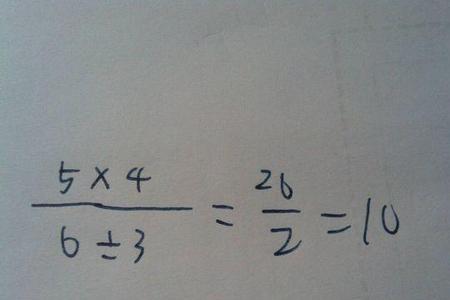 5 × 4
6 ÷ 3
= 20
2
= 10